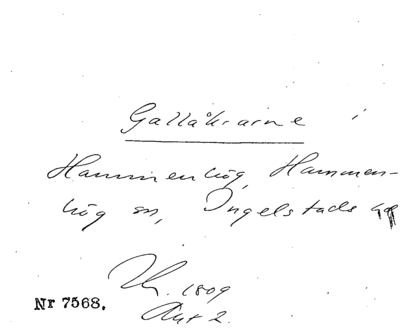 Gallåkrarne i
Hammenhög, Hammen-
hög sn, Ingelstads hd
1809
Akt 2.
Nr 7568.